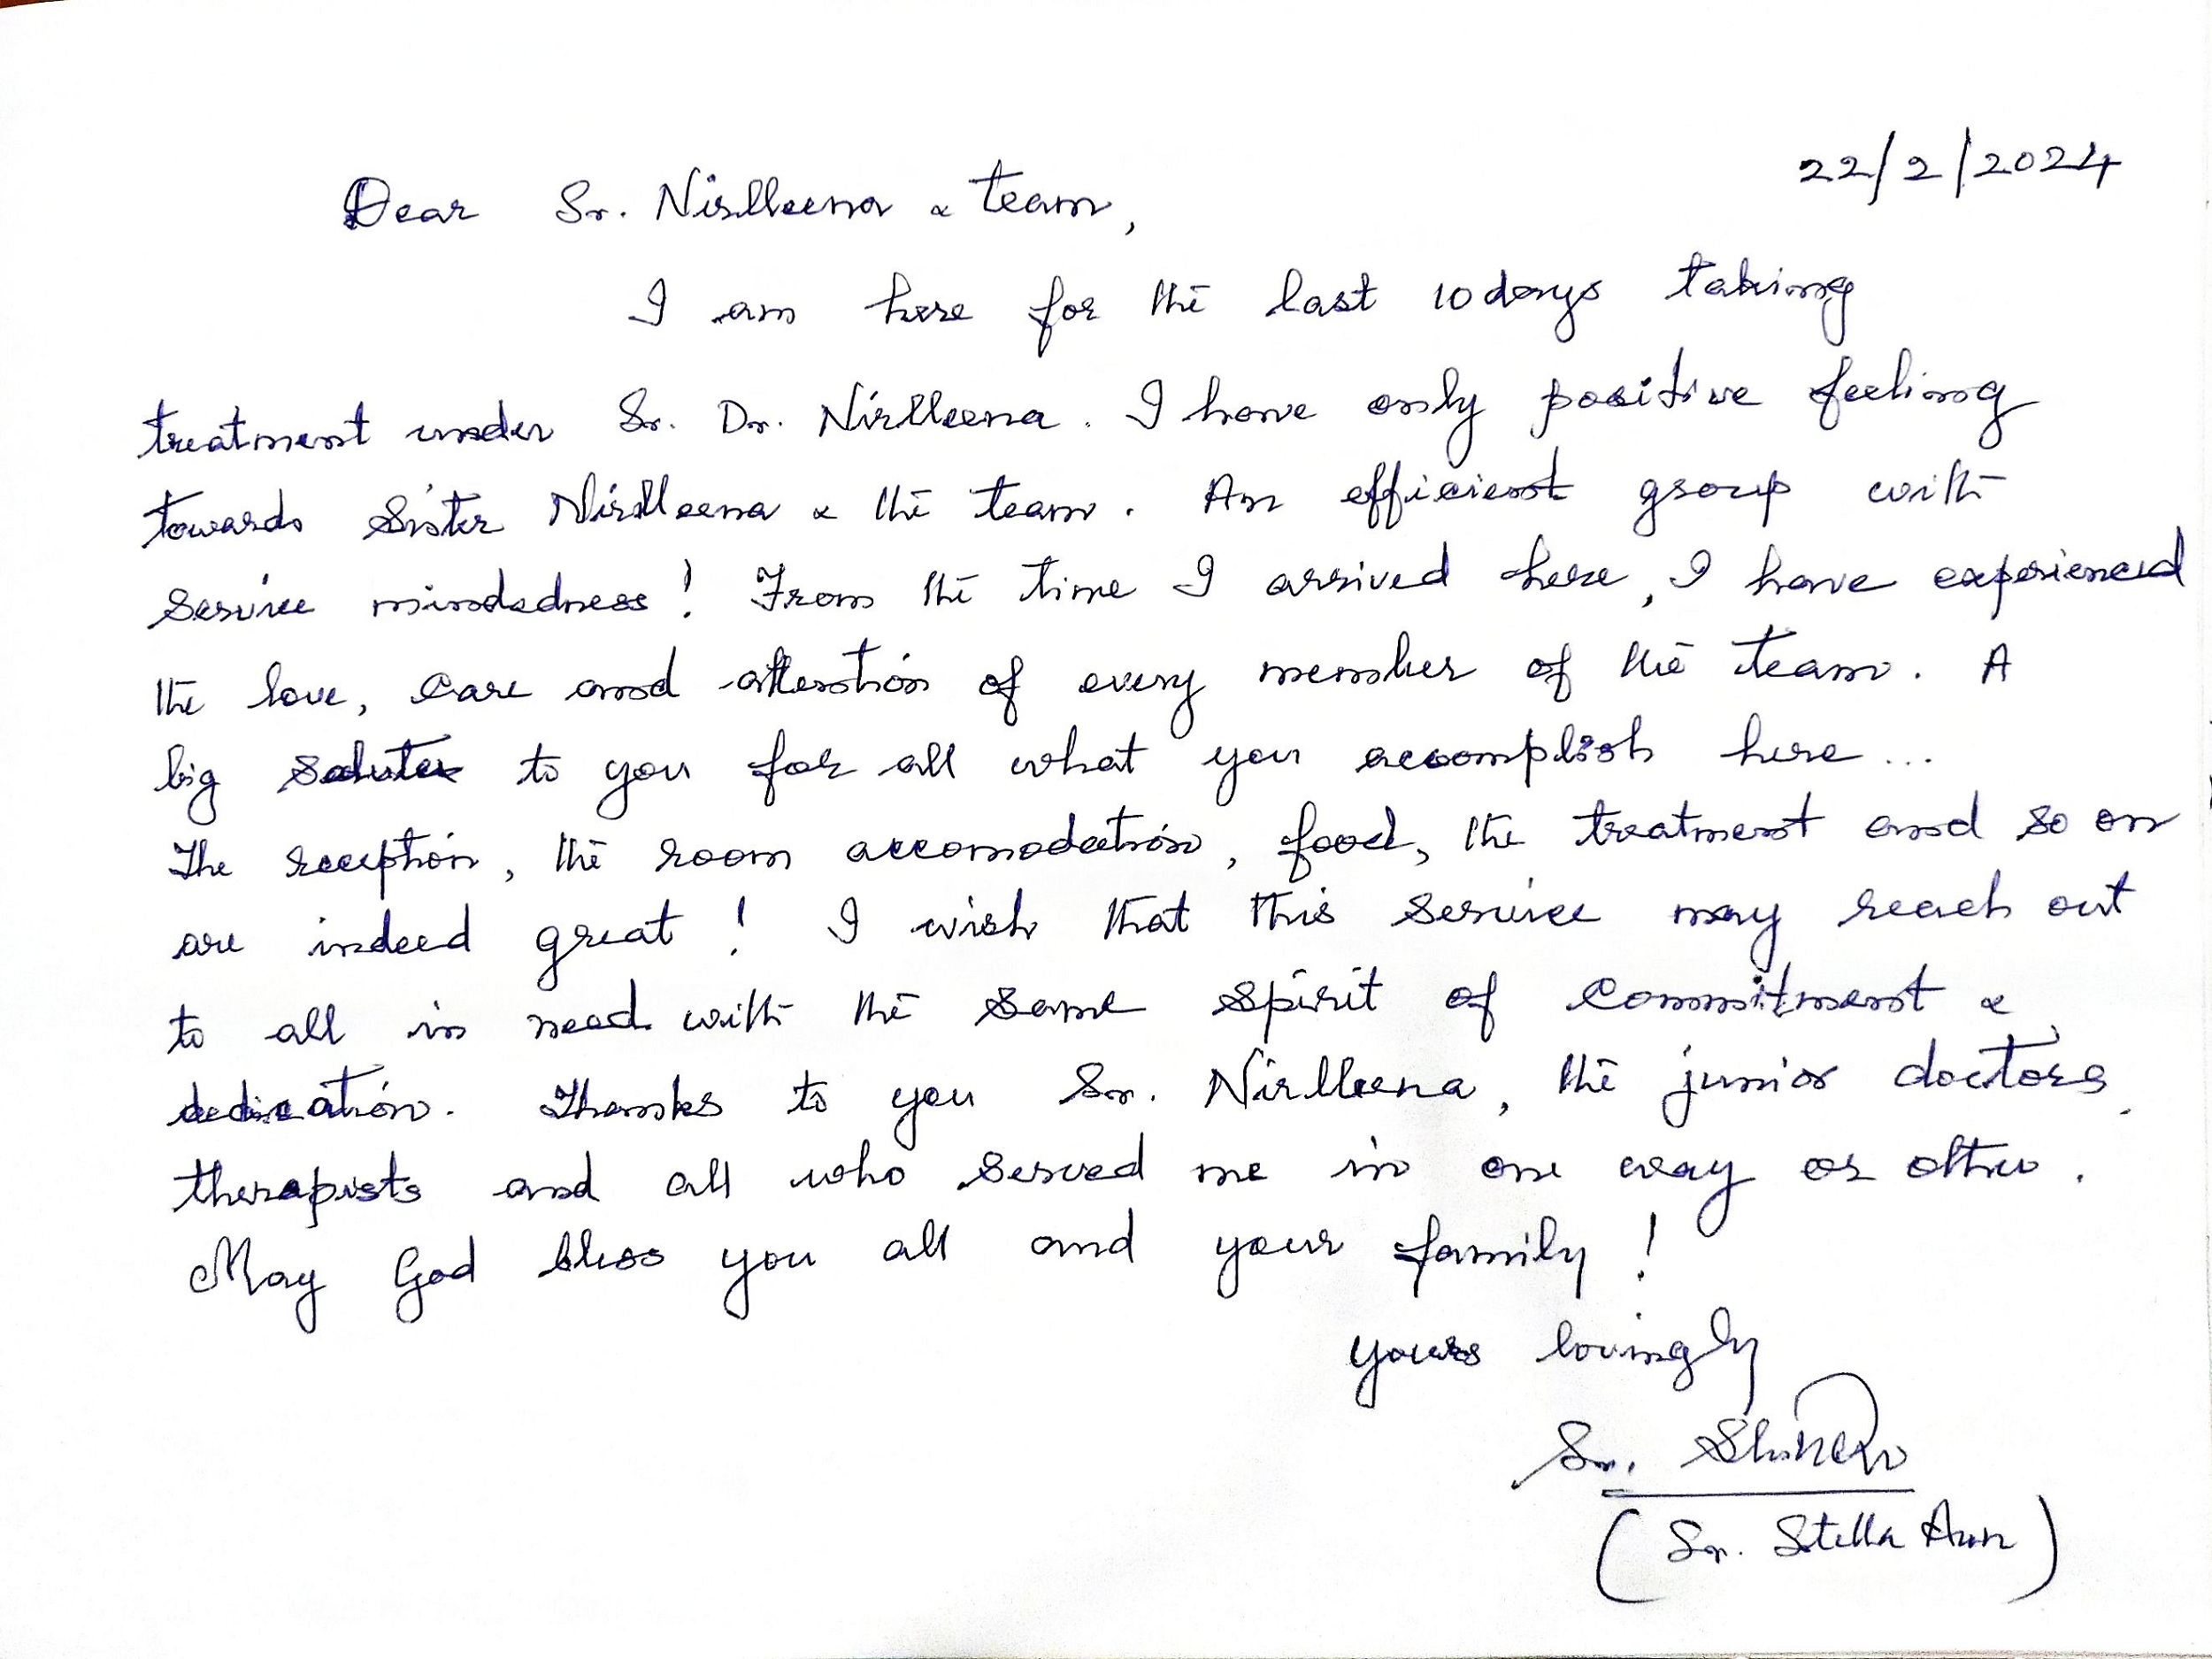 22/2/2024
Dear Sr. Nirlleena & team,
I am here for the last 10 days taking
treatment under Sr. Dr. Nirlleena. I have only positive feeling
towards Sister Nirlleena & the team. An efficient group with
service mindedness! From the time I arrived here, I have experienced
the love, care and attention of every member of the team. A
big salute to you for all what you accomplish here...
The reception, the room accomodation, food, the treatment and so on
are indeed great! I wish that this service may reach out
to all in need with the same spirit of commitment &
dedication. Thanks to you Sr. Nirlleena, the junior doctors,
therapists and all who served me in one way or other.
May God bless you all and your family!
yours lovingly
Sr.
(Sr. Stella Ann)